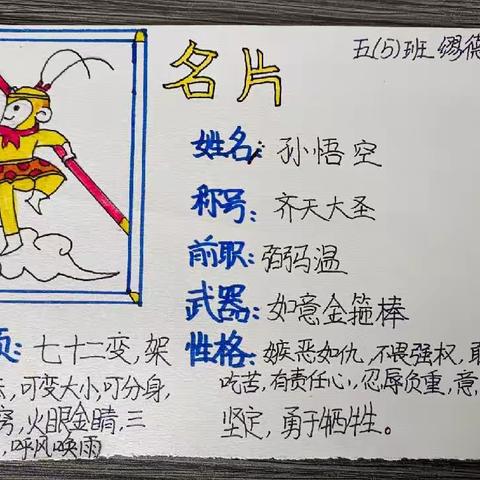 五(5)班 缪德
名片
姓名：孙悟空
称号：齐天大圣
前职：弼码温
武器：如意金箍棒
性格：嫉恶如仇，不畏强权，
吃苦，有责任心，忍辱负重，意
坚定，勇于牺牲。
：七十二变，架
，可变大小，可分身，
，火眼金睛，三
，呼风唤雨